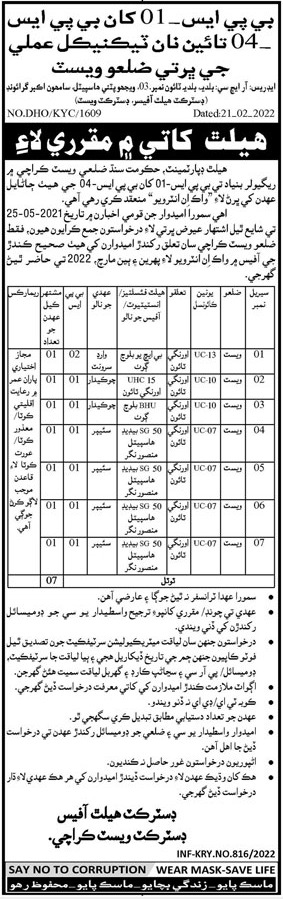 بي پي ايس_01 کان بي پي ايس
_04 تائين نان ٽيڪنيڪل عملي
جي ڀرتي ضلعو ويسٽ
(ڊسٽرڪٽ هيلٿ آفيس، ڊسٽرڪٽ ويسٽ)
NO.DHO/KYC/1609 Dated:21_02_2022
هيلٿ کاتي ۾ مقرري لاءِ
هيلٿ ڊپارٽمينٽ، حڪومت سنڌ ضلعي ويسٽ ڪراچي ۾
ريگيولر بنياد تي بي پي ايس-01 کان بي پي ايس-04 جي هيٺ ڄاڻايل
عهدن کي ڀرڻ لاءِ "واڪ ان انٽرويو" منعقد ڪري رهي آهي.
اهي سمورا اميدوار جن قومي اخبارن ۾ تاريخ 25-05-2021
تي شايع ٿيل اشتهار عيوض ڀرتي لاءِ درخواستون جمع ڪرايون هيون، فقط
ضلعو ويسٽ ڪراچي سان تعلق رکندڙ اميدوارن کي هيٺ صحيح ڪندڙ
جي آفيس ۾ واڪ ان انٽرويو لاءِ پهرين ۽ ٻين مارچ، 2022 تي حاضر ٿيڻ
گهرجي.
سيريل نمبر | ضلعو | يونين ڪائونسل | تعلقو | هيلٿ فئسلٽيز/ انسٽيٽيوٽ/ آفيس جو نالو | عهدي جو نالو | بي پي ايس | مشتهر ڪيل عهدن جو تعداد | ريمارڪس
01 | ويسٽ | UC-13 | اورنگي ٽائون | بي ايڇ يو بلوچ ڳوٺ | وارڊ سرونٽ | 02 | 01
02 | ويسٽ | UC-10 | اورنگي ٽائون | UHC 15 اورنگي ٽائون | چوڪيدار | 01 | 01
03 | ويسٽ | UC-10 | اورنگي ٽائون | BHU بلوچ ڳوٺ | چوڪيدار | 01 | 01
04 | ويسٽ | UC-07 | اورنگي ٽائون | 50 SG بيڊيڊ هاسپيٽل منصور نگر | سئيپر | 01 | 01
05 | ويسٽ | UC-07 | اورنگي ٽائون | 50 SG بيڊيڊ هاسپيٽل منصور نگر | سئيپر | 01 | 01
06 | ويسٽ | UC-07 | اورنگي ٽائون | 50 SG بيڊيڊ هاسپيٽل منصور نگر | سئيپر | 01 | 01
07 | ويسٽ | UC-07 | اورنگي ٽائون | 50 SG بيڊيڊ هاسپيٽل منصور نگر | سئيپر | 01 | 01
مجاز اختياري پاران عمر ۾ رعايت
اقليتي ڪوٽا/ معذور ڪوٽا/ عورت ڪوٽا لاءِ قاعدن موجب لاڳو ڪرڻ گهرجي آهي.
ٽوٽل 07
• سمورا عهدا ٽرانسفر نه ٿيڻ جوڳا ۽ عارضي آهن.
• عهدي تي چونڊ/ مقرري کانپوءِ ترجيح واسطيدار يو سي جو ڊوميسائل
رکندڙن کي ڏني ويندي.
• درخواستون جنهن سان لياقت ميٽريڪيوليشن سرٽيفڪيٽ جون تصديق ٿيل
فوٽو ڪاپيون جنهن ڄم جي تاريخ ڏيکاريل هجي ۽ ٻيا لياقت جا سرٽيفڪيٽ،
ڊوميسائل/ پي آر سي ۽ سڃاڻپ ڪارڊ ۽ گهربل لياقت سميت هئڻ گهرجن.
• اڳواٽ ملازمت ڪندڙ اميدوارن کي کاتي معرفت درخواست ڏيڻ گهرجي.
• ڪو به ٽي اي/ ڊي اي نه ڏنو ويندو.
• عهدن جو تعداد دستيابي مطابق تبديل ڪري سگهجي ٿو.
• اميدوار واسطيدار يو سي ۽ ضلعي جو ڊوميسائل رکندڙ عهدن تي درخواست
ڏيڻ جا اهل آهن.
• اڻپوريون درخواستون غور حاصل نه ڪنديون.
• هڪ کان وڌيڪ عهدن لاءِ درخواست ڏيندڙ اميدوارن کي هر هڪ عهدي لاءِ ڌار
درخواست ڏيڻ گهرجي.
ڊسٽرڪٽ هيلٿ آفيس
ڊسٽرڪٽ ويسٽ ڪراچي.
INF-KRY.NO.816/2022
SAY NO TO CORRUPTION WEAR MASK-SAVE LIFE
ماسڪ پايو_زندگي بچايو_ماسڪ پايو_محفوظ رهو